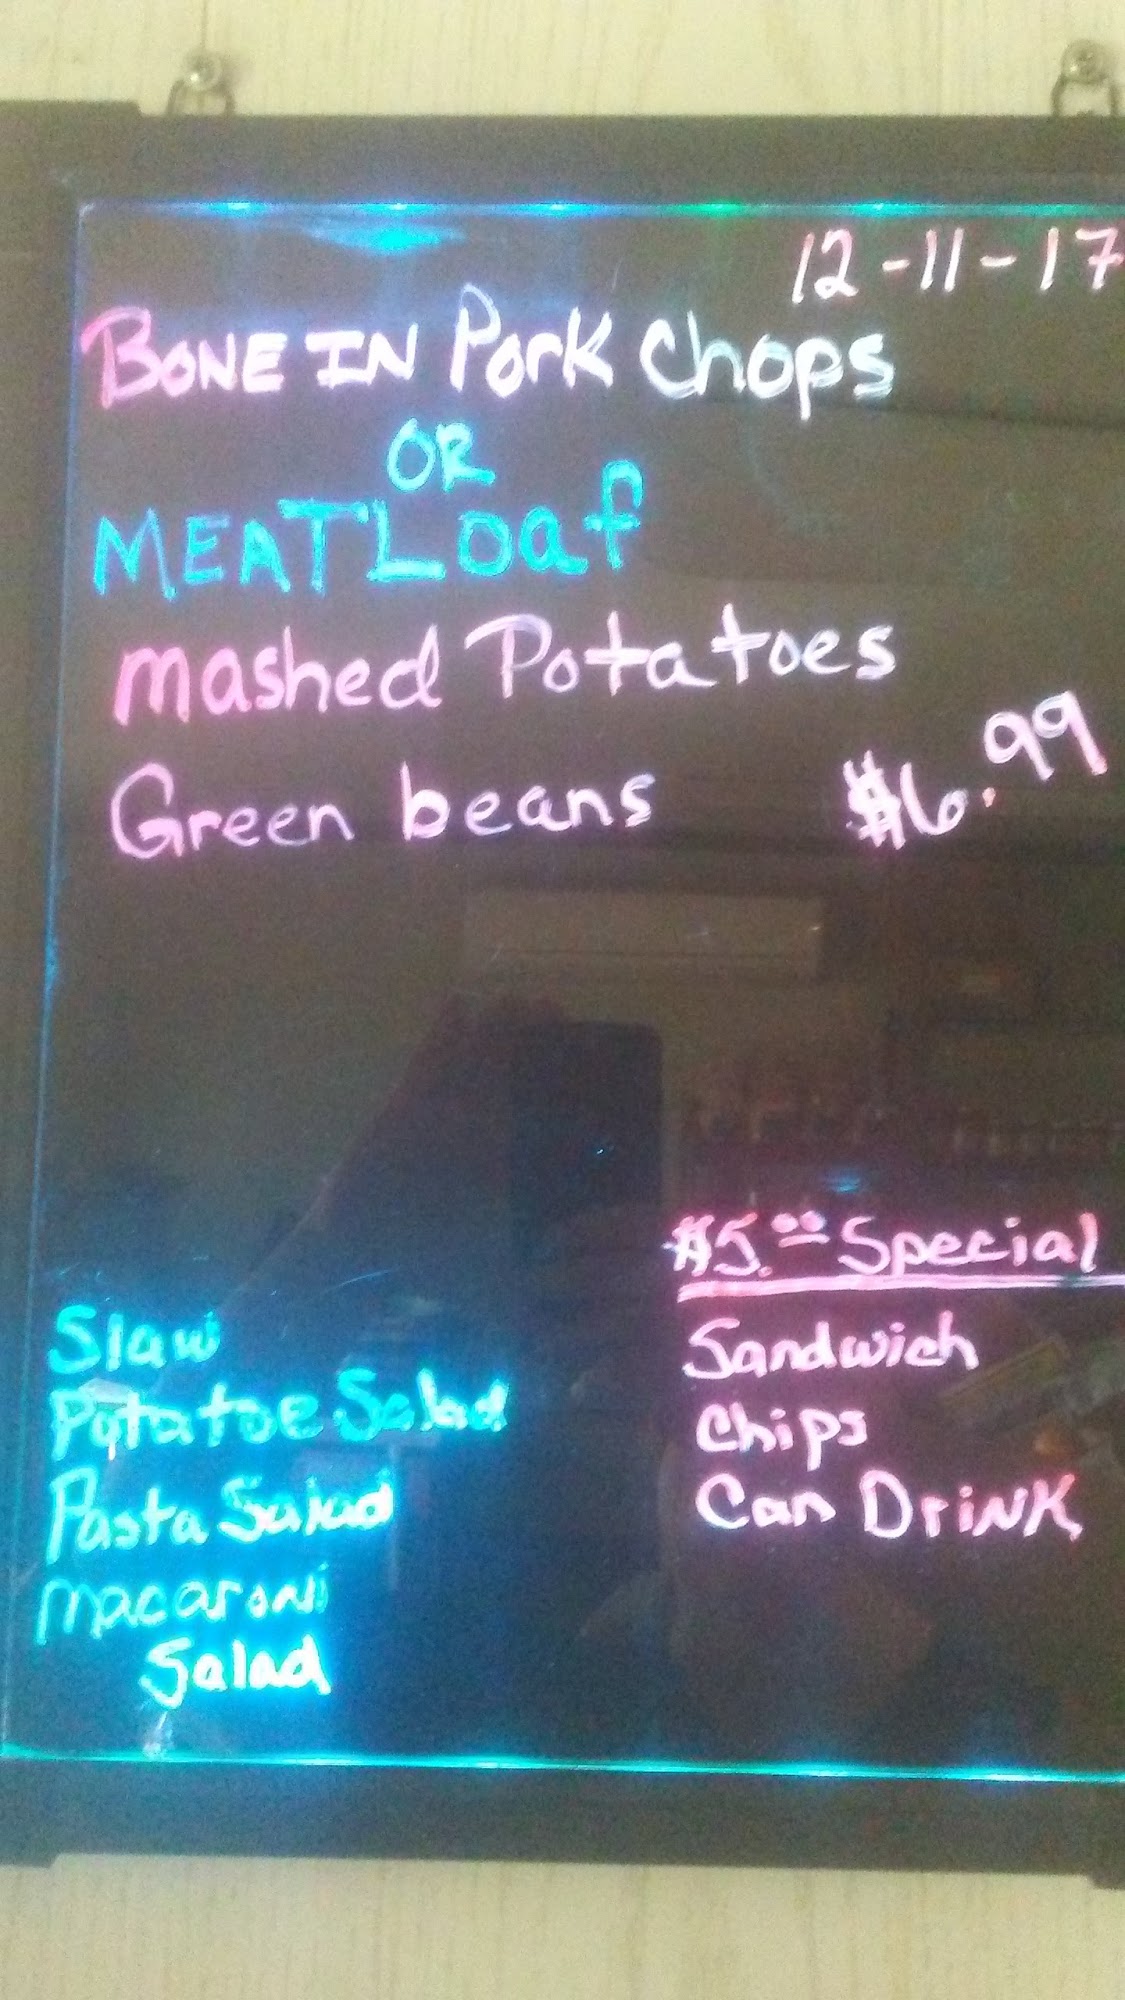 12-11-17
BONE IN Pork Chops
OR
MEATLoaf
mashed Potatoes
Green beans $6.99
$5.00 Special
Sandwich
Chips
Can DriNK
Slaw
Potatoe Salad
Pasta Salad
macaroni
Salad